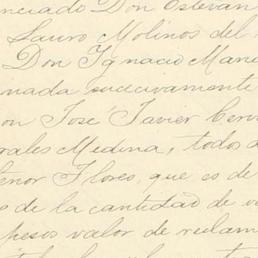 nciado Don Estevan
Lauro Molinos del
Don Ignacio Man
nada succivamente
on José Javier Cerv
rales Medina, todos d
enor Flores, que es de
s de la cantidad de v
pesos valor de reclam